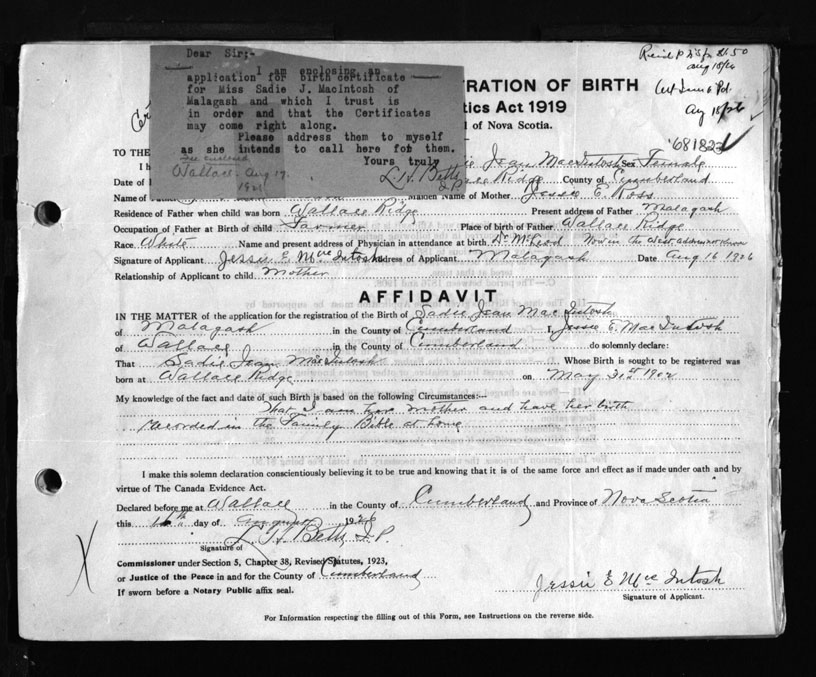 Dear Sir;-
I am enclosing an
application for birth certificate
for Miss Sadie J. MacIntosh of
Malagash and which I trust is
in order and that the Certificates
may come right along.
Please address them to myself
as she intends to call here for them.
Yours truly
L. H. Betts
J.P.
Fee enclosed
Wallace Aug 17.
8.50
Aug 18/26
Aug 18/26
TRATION OF BIRTH
tics Act 1919
of Nova Scotia.
681823
TO THE
Jean MacIntosh Sex Female
Date of Ridge County of Cumberland
Name of Maiden Name of Mother Jessie E. Ross
Residence of Father when child was born Wallace Ridge Present address of Father Malagash
Occupation of Father at Birth of child Farmer Place of birth of Father Wallace Ridge
Race White Name and present address of Physician in attendance at birth Dr McLeod Now in the West
Signature of Applicant Jessie E McIntosh Address of Applicant Malagash Date Aug 16 1926
Relationship of Applicant to child Mother
AFFIDAVIT
IN THE MATTER of the application for the registration of the Birth of Sadie Jean MacIntosh
of Malagash in the County of Cumberland I, Jessie E. MacIntosh
of Wallace in the County of Cumberland do solemnly declare:
That Sadie Jean MacIntosh Whose Birth is sought to be registered was
born at Wallace Ridge on May 31st 1902
My knowledge of the fact and date of such Birth is based on the following Circumstances:—
That I am her mother and have her birth
recorded in the Family Bible at home
I make this solemn declaration conscientiously believing it to be true and knowing that it is of the same force and effect as if made under oath and by
virtue of The Canada Evidence Act.
Declared before me at Wallace in the County of Cumberland and Province of Nova Scotia
this 16th day of August 1926
L H Betts J.P.
Signature of
Commissioner under Section 5, Chapter 38, Revised Statutes, 1923,
or Justice of the Peace in and for the County of Cumberland
If sworn before a Notary Public affix seal.
Jessie E McIntosh
Signature of Applicant.
For Information respecting the filling out of this Form, see Instructions on the reverse side.